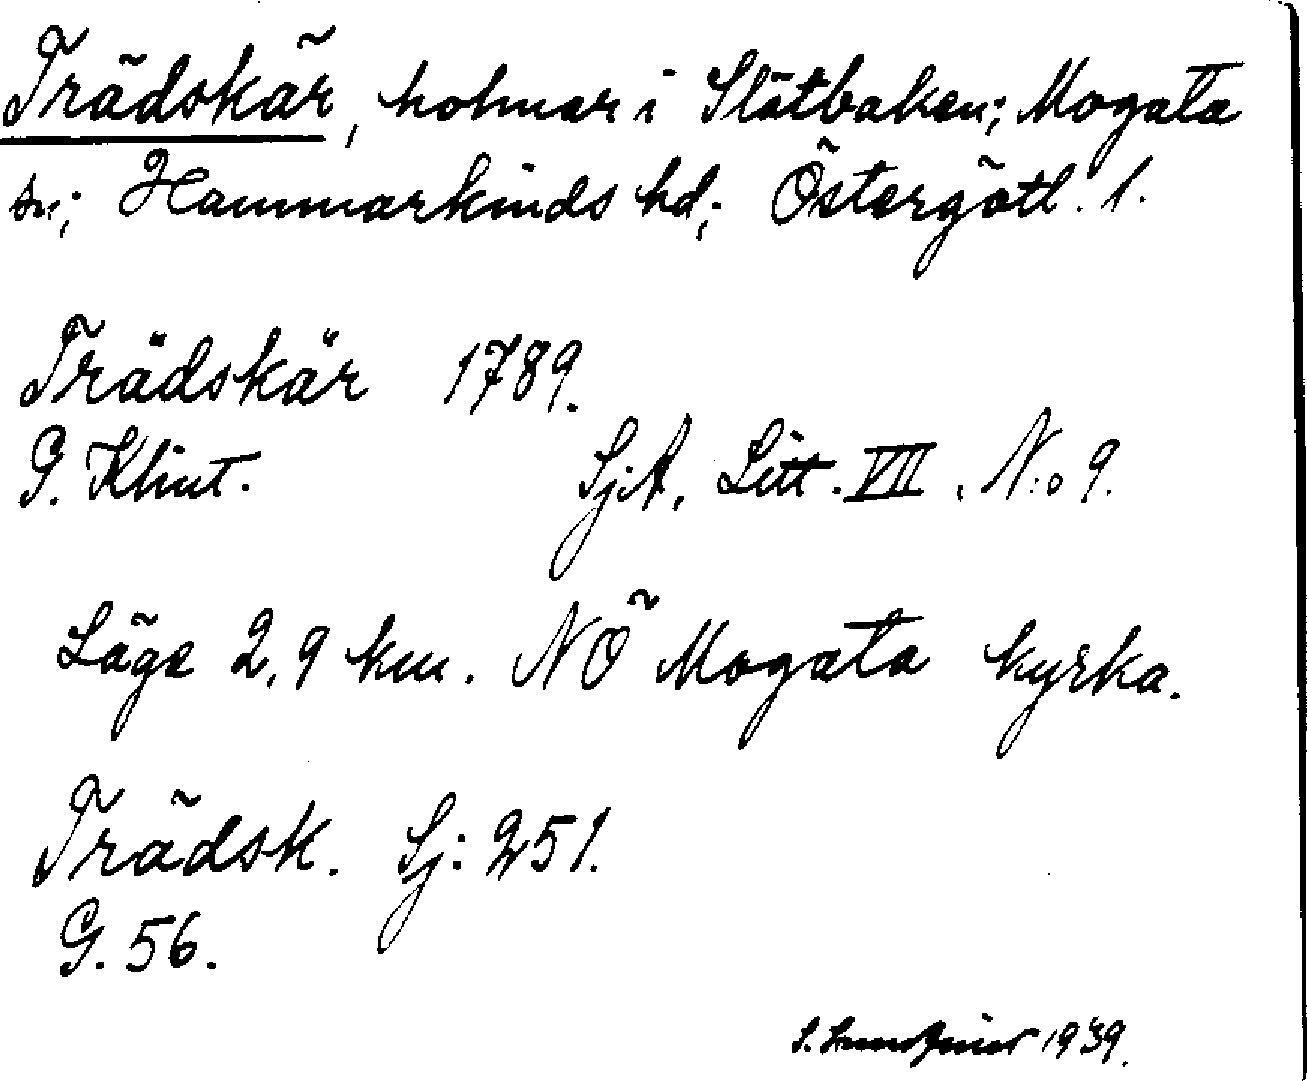 Trädskär, holmar i Slätbaken; Mogata
sn; Hammarkinds hd; Östergötl. l.
Trädskär 1789.
G. Klint. SjA, Litt. VII, N:o 9.
Läge 2,9 km. NÖ Mogata kyrka.
Trädsk. Sj: 251.
G. 56.
S. 1939.